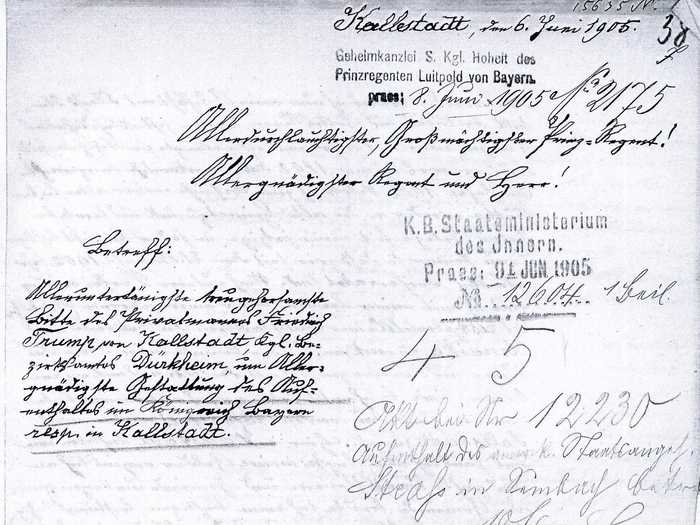 15635 N.
Kallstadt, den 6. Juni 1905.
38
Geheimkanzlei S. Kgl. Hoheit des
Prinzregenten Luitpold von Bayern.
praes; 8. Juni 1905 No 2175
Allerdurchlauchtigster, Großmächtigster Prinz-Regent!
Allergnädigster Regent und Herr!
K.B. Staatsministerium
des Innern.
Praes: 91 JUN 1905
No 12604. 1 Beil.
Betreff:
Alleruntertänigste treugehorsamste
Bitte des Privatmannes Friedrich
Trump, von Kallstadt, Kgl. Be-
zirksamtes Dürkheim, um Aller-
gnädigste Gestattung des Auf-
enthaltes im Königreich Bayern
resp. in Kallstadt.
4 5
Nr 12230
Aufenthalt des k. Staatsangeh.
in Sembach betr.